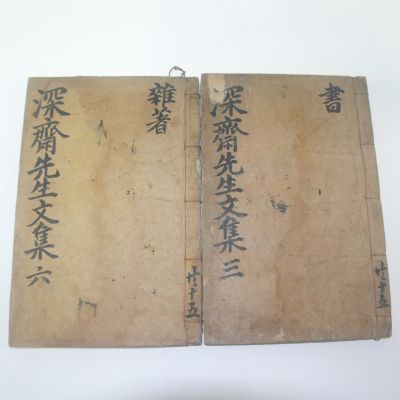 書
深齋先生文集 三
共十五
雜著
深齋先生文集 六
共十五